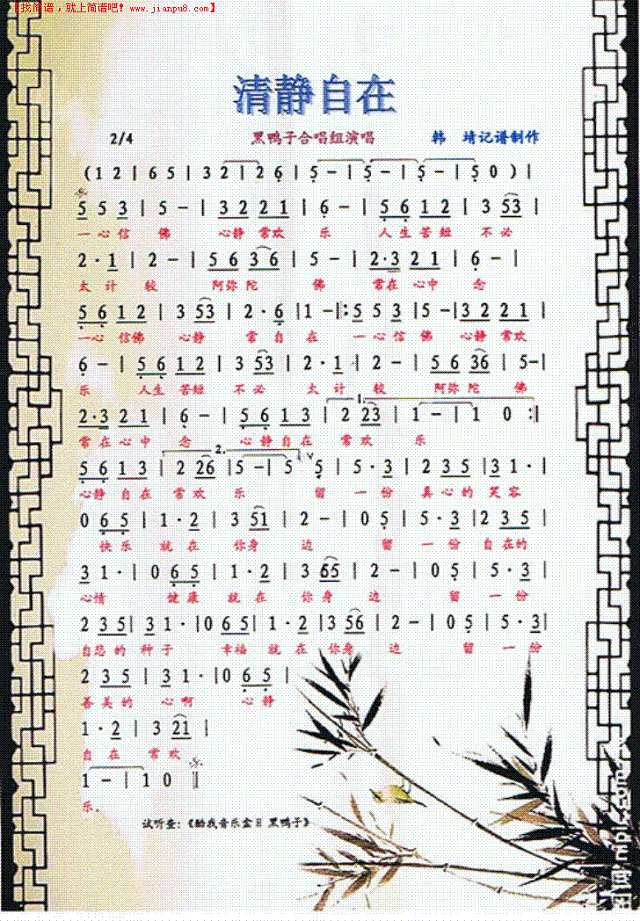 【找简谱，就上简谱吧! www.jianpu8.com】
清静自在
2/4 黑鸭子合唱组演唱 韩 靖记谱制作
(1 2 | 6 5 | 3 2 1 | 2 6 | 5 - | 5 - | 5 - | 5 0 ) |
5 5 3 | 5 - | 3 2 2 1 | 6 - | 5 6 1 2 | 3 53 |
一心信 佛 心静常欢 乐 人生苦短 不必
2 · 1 | 2 - | 5 6 3 6 | 5 - | 2·3 2 1 | 6 - |
太 计 较 阿弥陀 佛 常在心中 念
5 6 1 2 | 3 53 | 2 · 6 | 1 - :5 5 3 | 5 - | 3 2 2 1 |
一心信佛 心静 常 自 在 一心信佛 心静常欢
6 - | 5 6 1 2 | 3 53 | 2 · 1 | 2 - | 5 6 36 | 5 - |
乐 人生苦短 不必 太 计 较 阿弥陀 佛
1.
2·3 2 1 | 6 - | 5 6 1 3 | 2 23 | 1 - | 1 0 :|
常在心中 念 心静自在 常欢 乐
2.
5 6 1 3 | 2 26 | 5 - | 5 5 | 5 · 3 | 2 3 5 | 3 1 · |
心静自在 常欢 乐 留 一份 真心的 笑容
0 6 5 | 1 · 2 | 3 51 | 2 - | 0 5 | 5 · 3 | 2 3 5 |
快乐 就在 你身 边 留 一份 自在的
3 1 · | 0 6 5 | 1 · 2 | 3 65 | 2 - | 0 5 | 5 · 3 |
心情 健康 就在 你身 边 留 一份
2 3 5 | 3 1 · | 0 6 5 | 1 · 2 | 3 56 | 2 - | 0 5 | 5 · 3 |
自悲的 种子 幸福 就在 你身 边 留 一份
2 3 5 | 3 1 · | 0 6 5 |
善美的 心啊 心静
1 · 2 | 3 21 |
自 在 常欢
1 - | 1 0 ‖
乐.
试听查:《酷我音乐盒 黑鸭子》